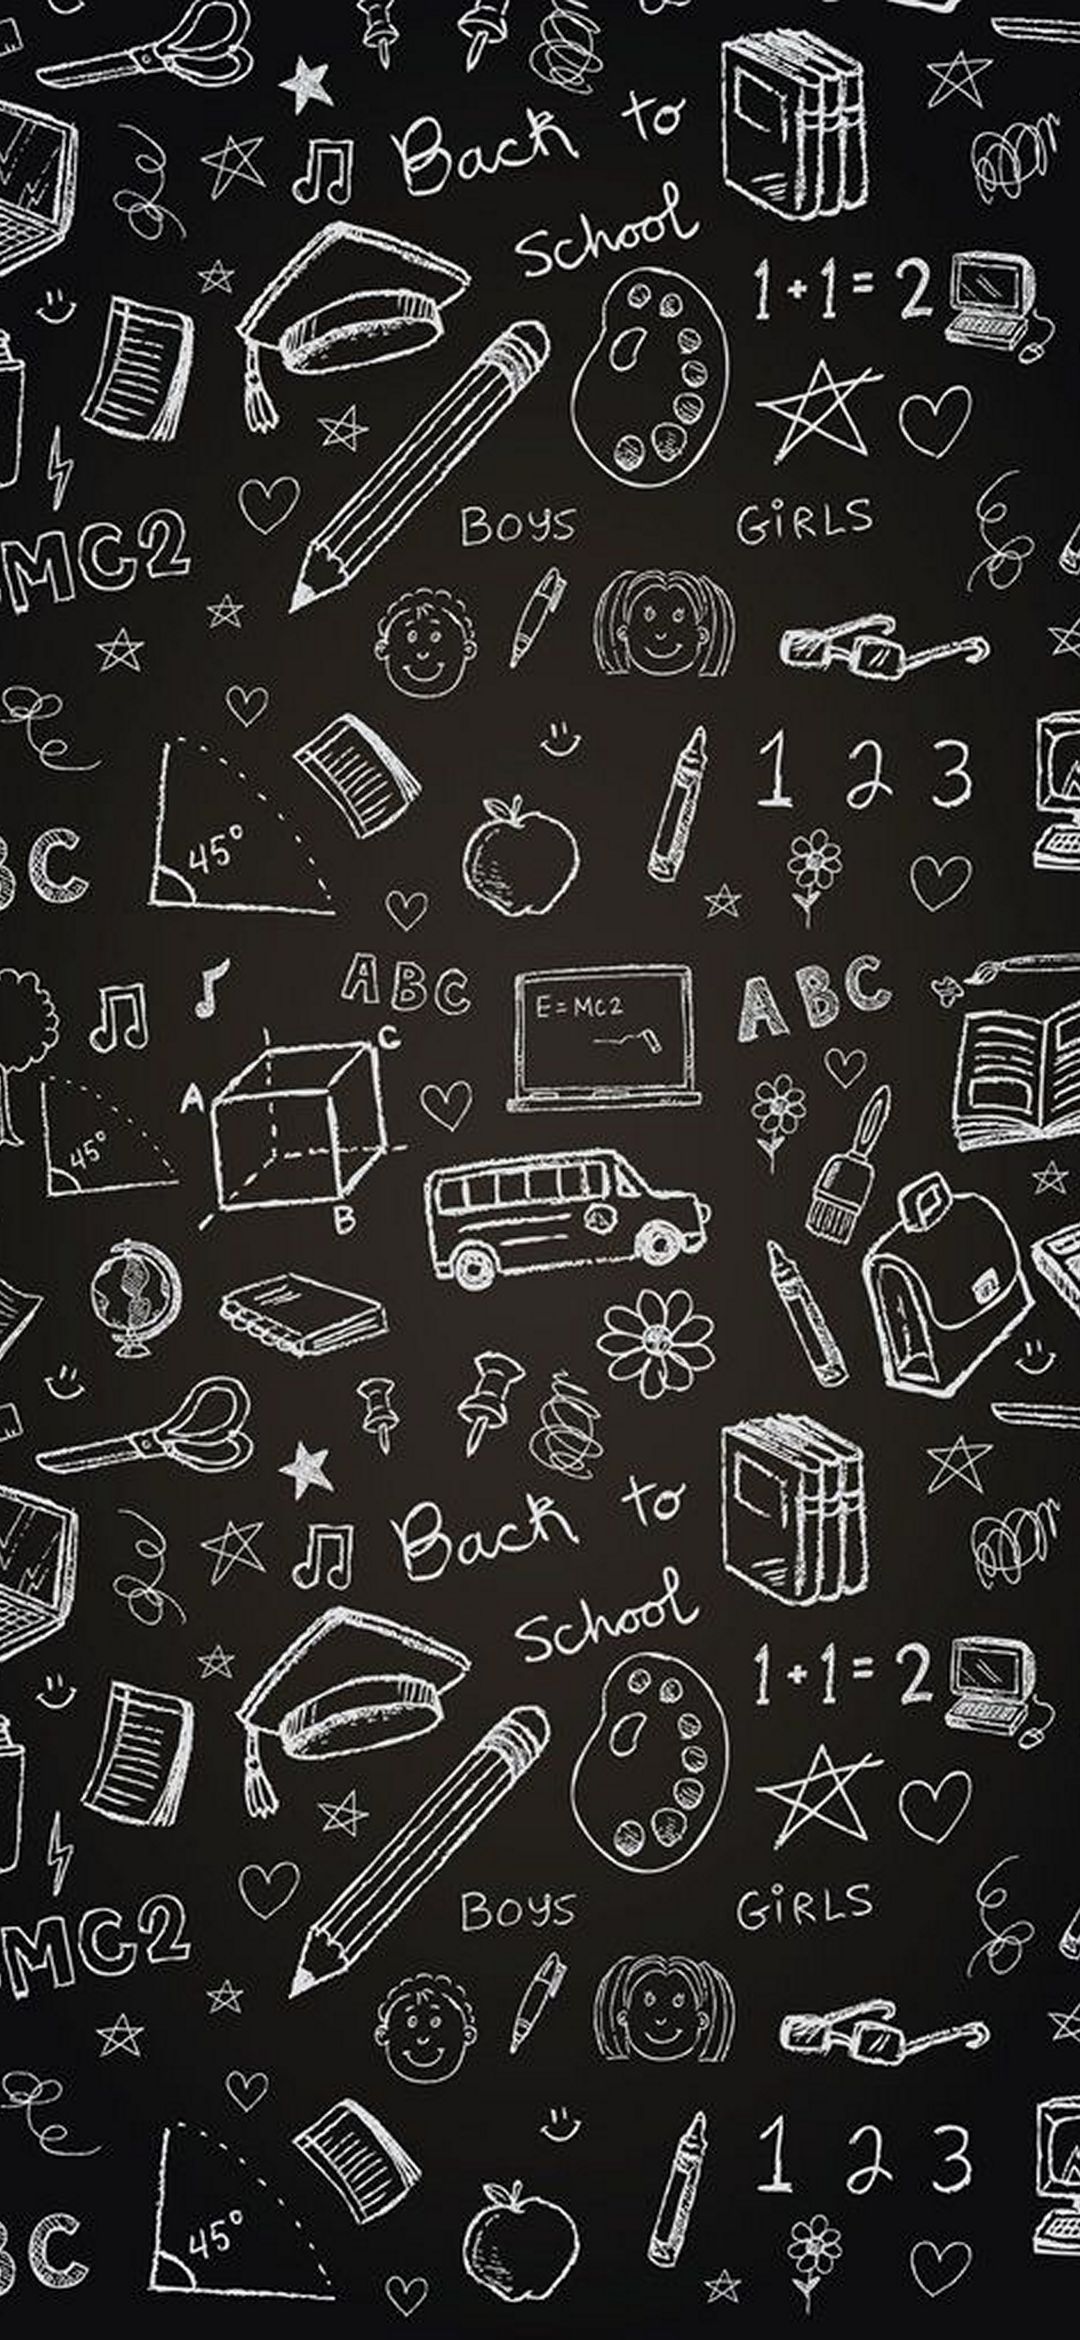 Back to
School
1+1=2
MC2
BOYS
GiRLS
1 2 3
45°
BC
ABC
E=MC2
ABC
C
A
45°
B
Back to
School
1+1=2
MC2
BOYS
GiRLS
1 2 3
45°
BC